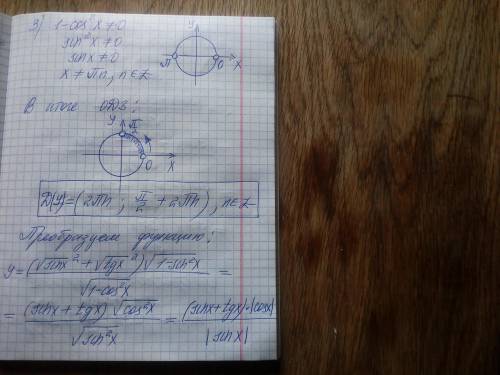 3) 1-cos²x≠0
sin²x≠0
sinx≠0
x≠πn, n∈Z
y
π 0 x
В итоге ОДЗ:
y π/2
0 x
D(y)=(2πn; π/2+2πn), n∈Z
Преобразуем функцию:
y=((√sinx)²+(√tgx)²)√1-sin²x / √1-cos²x =
= (sinx+tgx)√cos²x / √sin²x = (sinx+tgx)·|cosx| / |sinx|